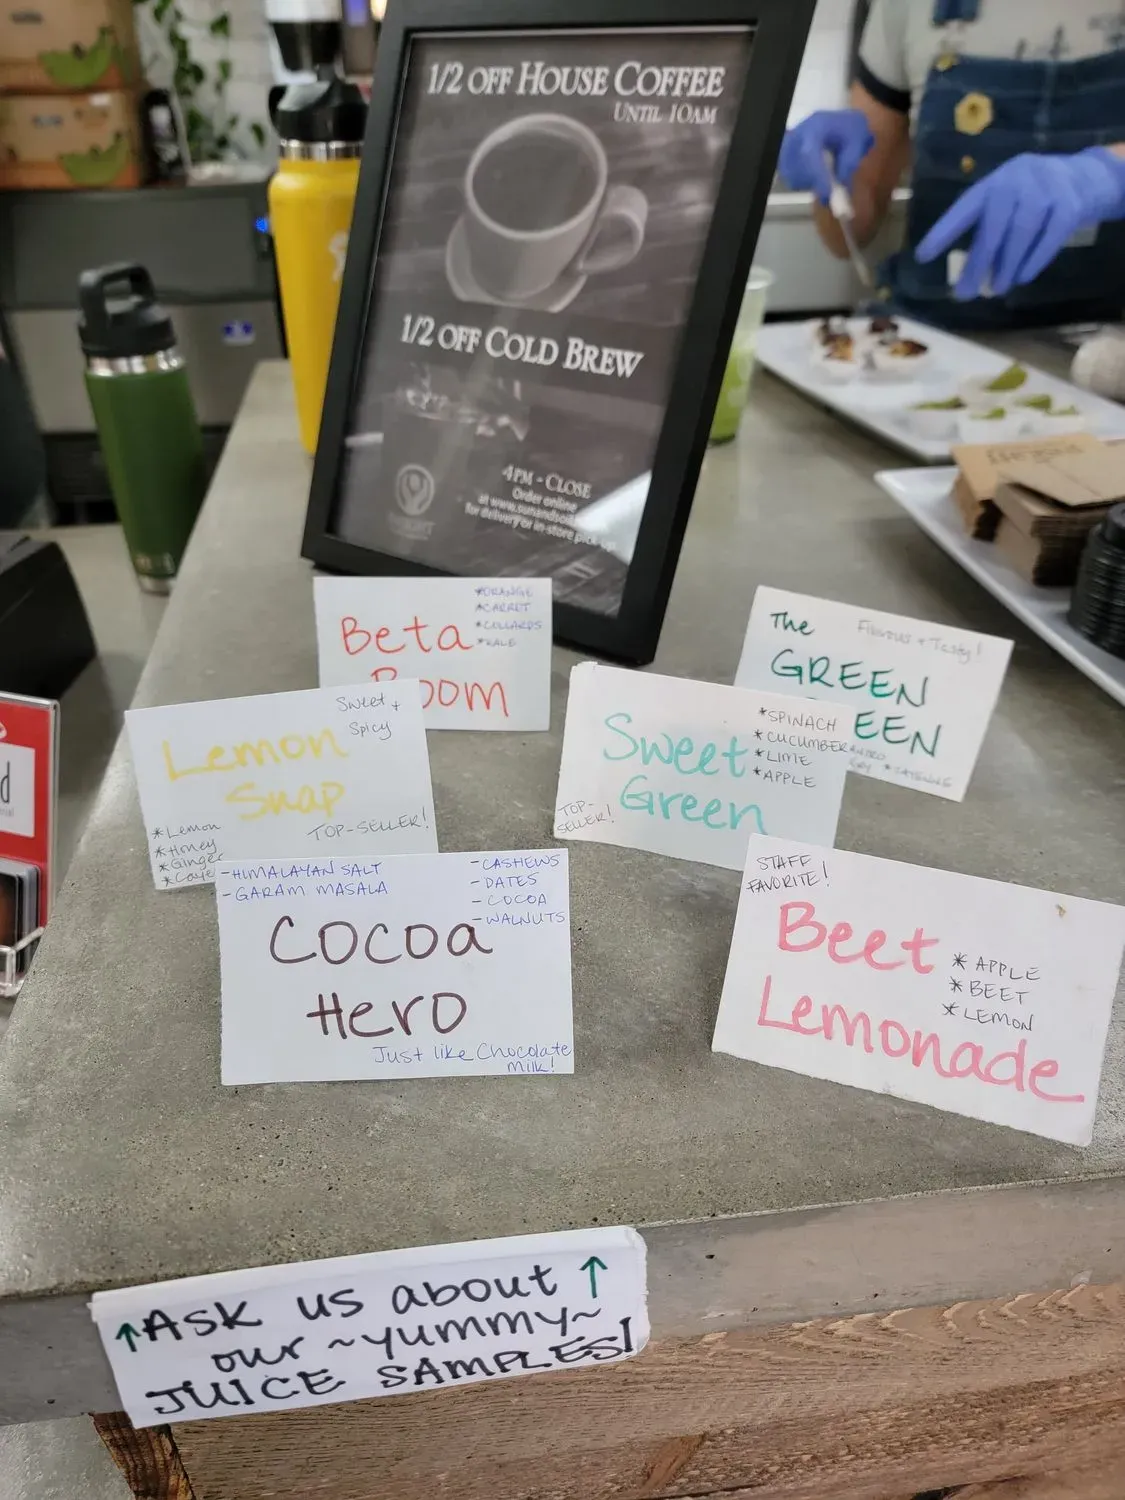 1/2 OFF HOUSE COFFEE
UNTIL 10AM
1/2 OFF COLD BREW
4PM - CLOSE
Order online
for delivery or in-store pick up!
Beta
Boom
*ORANGE
*CARRET
*COLLARDS
*KALE
The
Flavorus + Tasty!
GREEN
EEN
Lemon
Snap
Sweet +
Spicy
TOP-SELLER!
*Lemon
*Honey
*Ginger
*Caye
Sweet
Green
*SPINACH
*CUCUMBER
*LIME
*APPLE
TOP-
SELLER!
-HIMALAYAN SALT
-GARAM MASALA
-CASHEWS
-DATES
-COCOA
-WALNUTS
Cocoa
Hero
Just like Chocolate
Milk!
STAFF
FAVORITE!
Beet
Lemonade
*APPLE
*BEET
*LEMON
↑Ask us about ↑
our ~yummy~
JUICE SAMPLES!